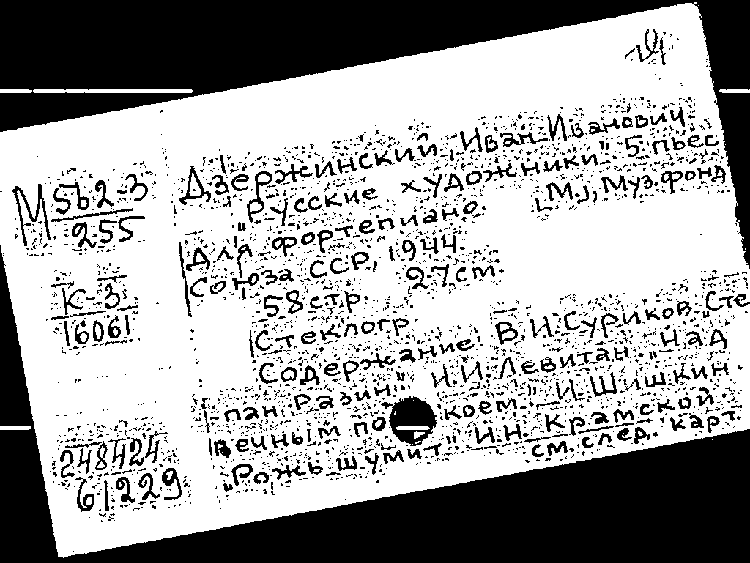 Дзержинский, Иван Иванович.
"Русские художники". 5 пьес
для фортепиано. [М.], Муз.фонд
Союза ССР, 1944.
58 стр. 27 ст.
Стеклогр.
Содержание: В.И.Суриков. "Сте
-пан Разин". И.И.Левитан. "Над
вечным покоем". И.Шишкин.
"Рожь шумит". И.Н. Крамской.
см. след. карт.
М 562-3
255
К-3
16061
248424
61229